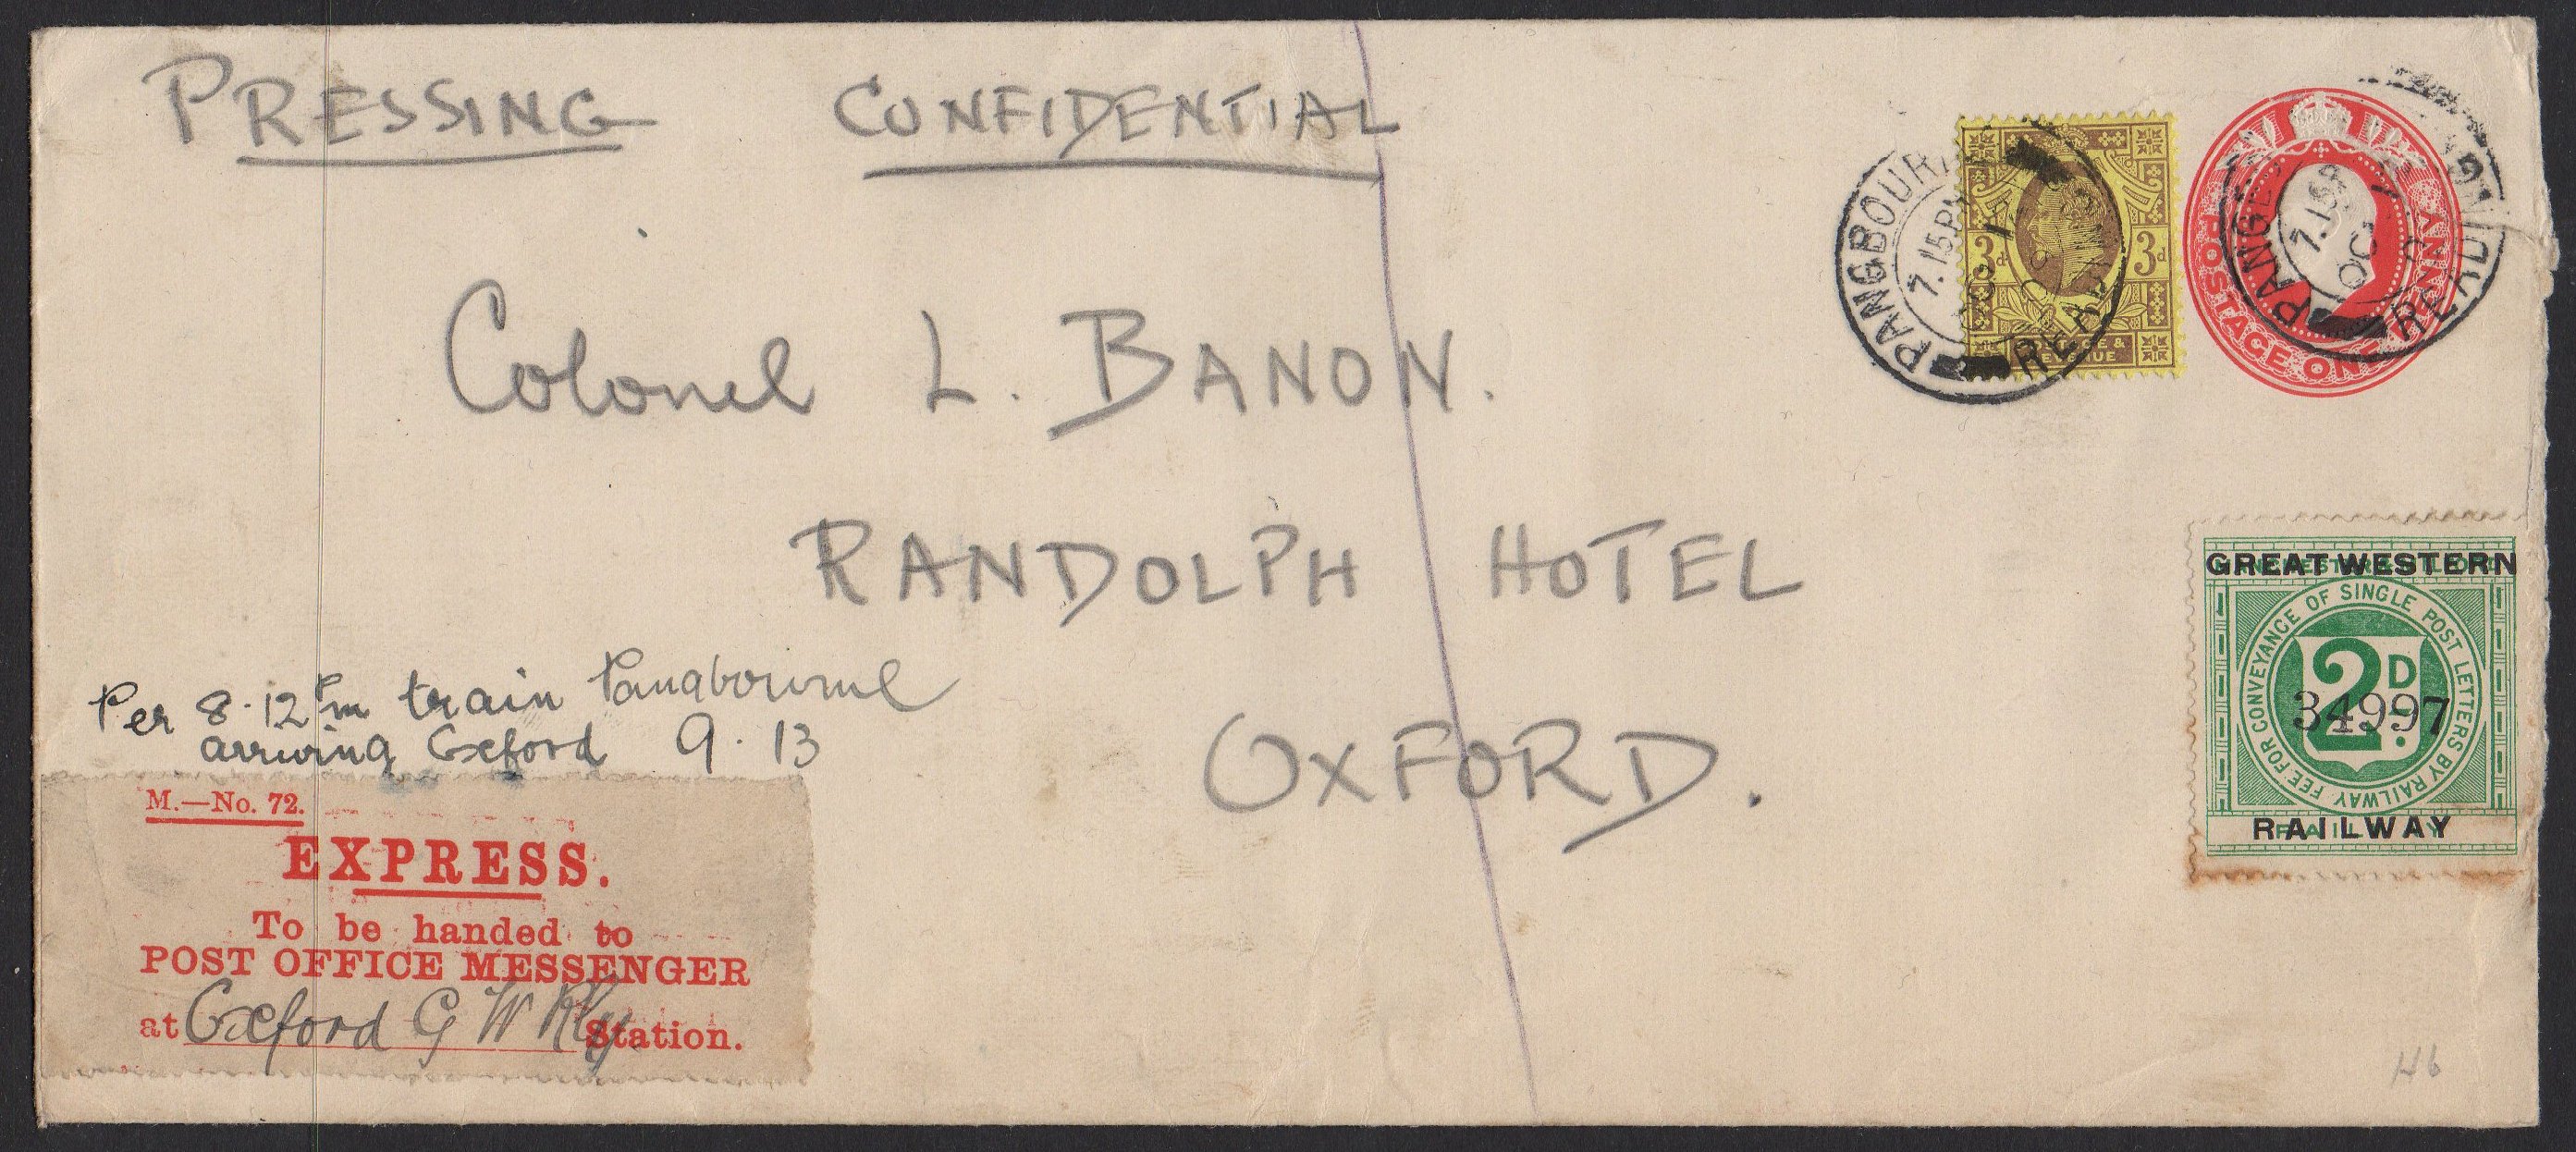 PRESSING CONFIDENTIAL
Colonel L. BANON.
RANDOLPH HOTEL
OXFORD.
Per 8.12 Pm train Pangbourne
arriving Oxford 9.13
M.—No. 72.
EXPRESS.
To be handed to
POST OFFICE MESSENGER
at Oxford G W Rly Station.
PANGBOURN
7.15PM
READIN
3d 3d
POSTAGE &
REVENUE
POSTAGE ONE PENNY
PANGB
7.15P
OC
READING
GREAT WESTERN
FEE FOR CONVEYANCE OF SINGLE POST LETTERS BY RAILWAY
2D.
34997
RAILWAY
H6